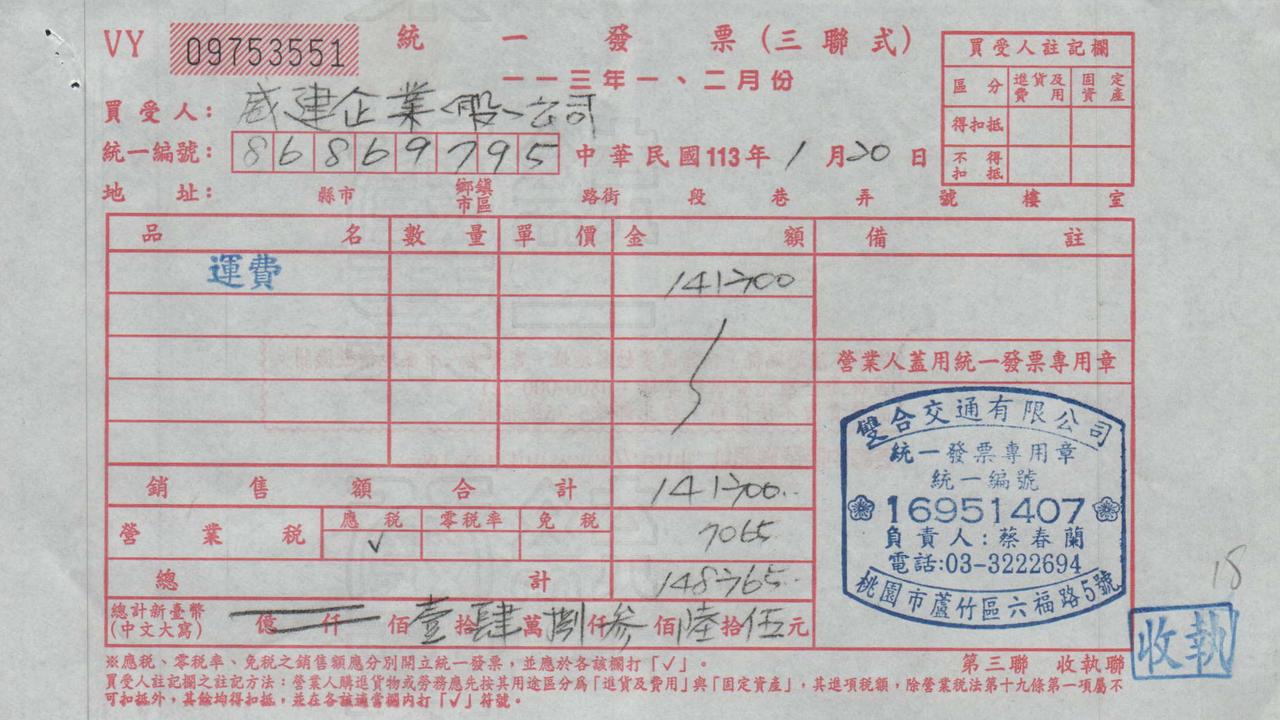 VY 09753551 統一發票(三聯式)
一一三年一、二月份
買受人: 威建企業(股)公司
統一編號: 86869795 中華民國113年1月20日
地址: 縣市 鄉鎮市區 路街 段 巷 弄 號 樓 室
買受人註記欄
區分 進貨及費用 固定資產
得扣抵
不得扣抵
品名 數量 單價 金額 備註
運費 141300
營業人蓋用統一發票專用章
銷售額合計 141300
營業稅 應稅 零稅率 免稅 7065
√
總計 148365
總計新臺幣(中文大寫) 億 仟 佰 壹拾肆萬捌仟參佰陸拾伍元
雙合交通有限公司
統一發票專用章
統一編號
16951407
負責人:蔡春蘭
電話:03-3222694
桃園市蘆竹區六福路5號
18
收執
※應稅、零稅率、免稅之銷售額應分別開立統一發票,並應於各該欄打「√」。
第三聯 收執聯
買受人註記欄之註記方法:營業人購進貨物或勞務應先按其用途區分為「進貨及費用」與「固定資產」,其進項稅額,除營業稅法第十九條第一項屬不
可扣抵外,其餘均得扣抵,並在各該適當欄內打「√」符號。